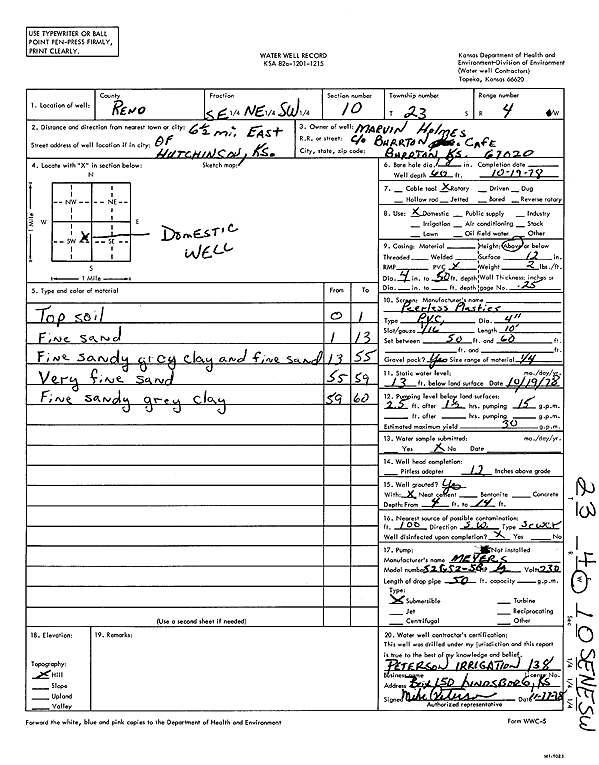 USE TYPEWRITER OR BALL
POINT PEN-PRESS FIRMLY,
PRINT CLEARLY.
WATER WELL RECORD
KSA 82a-1201-1215
Kansas Department of Health and
Environment-Division of Environment
(Water well Contractors)
Topeka, Kansas 66620
1. Location of well: County Reno Fraction SE 1/4 NE 1/4 SW 1/4 Section number 10 Township number T 23 S Range number R 4 W
2. Distance and direction from nearest town or city: 6½ mi. East
Street address of well location if in city: of
Hutchinson, Ks.
3. Owner of well: Marvin Holmes
R.R. or street: c/o Burrton Cafe
City, state, zip code: Burrton Ks. 67020
4. Locate with "X" in section below: Sketch map:
N
NW NE
W E
SW X SE
S
1 Mile
1 Mile
Domestic
Well
6. Bore hole dia. in. Completion date
Well depth 60 ft. 10-19-78
7. Cable tool X Rotary Driven Dug
Hollow rod Jetted Bored Reverse rotary
8. Use: X Domestic Public supply Industry
Irrigation Air conditioning Stock
Lawn Oil field water Other
9. Casing: Material Height: Above or below
Threaded Welded Surface 12 in.
RMP PVC X Weight 2 lbs./ft.
Dia. 4 in. to 50 ft. depth Wall Thickness: inches or
Dia. in. to ft. depth gage No. .25
5. Type and color of material From To
Top soil 0 1
Fine sand 1 13
Fine sandy grey clay and fine sand 13 55
Very fine sand 55 59
Fine sandy grey clay 59 60
(Use a second sheet if needed)
10. Screen: Manufacturer's name
Peerless Plastics
Type PVC, Dia. 4"
Slot/gauze 1/16 Length 10'
Set between 50 ft. and 60 ft.
ft. and ft.
Gravel pack? Yes Size range of material 1/4
11. Static water level: mo./day/yr.
13 ft. below land surface Date 10/19/78
12. Pumping level below land surfaces:
25 ft. after 1½ hrs. pumping 15 g.p.m.
ft. after hrs. pumping g.p.m.
Estimated maximum yield 30 g.p.m.
13. Water sample submitted: mo./day/yr.
Yes X No Date
14. Well head completion:
Pitless adapter 12 Inches above grade
15. Well grouted? Yes
With: X Neat cement Bentonite Concrete
Depth: From 4 ft. to 14 ft.
16. Nearest source of possible contamination:
ft. 100 Direction S.W. Type Sewer
Well disinfected upon completion? X Yes No
17. Pump: Not installed
Manufacturer's name Meyers
Model number HP ½ Volts 230
Length of drop pipe 50 ft. capacity g.p.m.
Type:
X Submersible Turbine
Jet Reciprocating
Centrifugal Other
18. Elevation:
Topography:
X Hill
Slope
Upland
Valley
19. Remarks:
20. Water well contractor's certification:
This well was drilled under my jurisdiction and this report
is true to the best of my knowledge and belief.
Peterson Irrigation 138
Business name License No.
Address Box 150 Lindsborg, Ks
Signed Mike Peterson Date
Authorized representative
Forward the white, blue and pink copies to the Department of Health and Environment
Form WWC-5
23 - 4 W 10 SE NE SW
T R W Sec 1/4 1/4 1/4